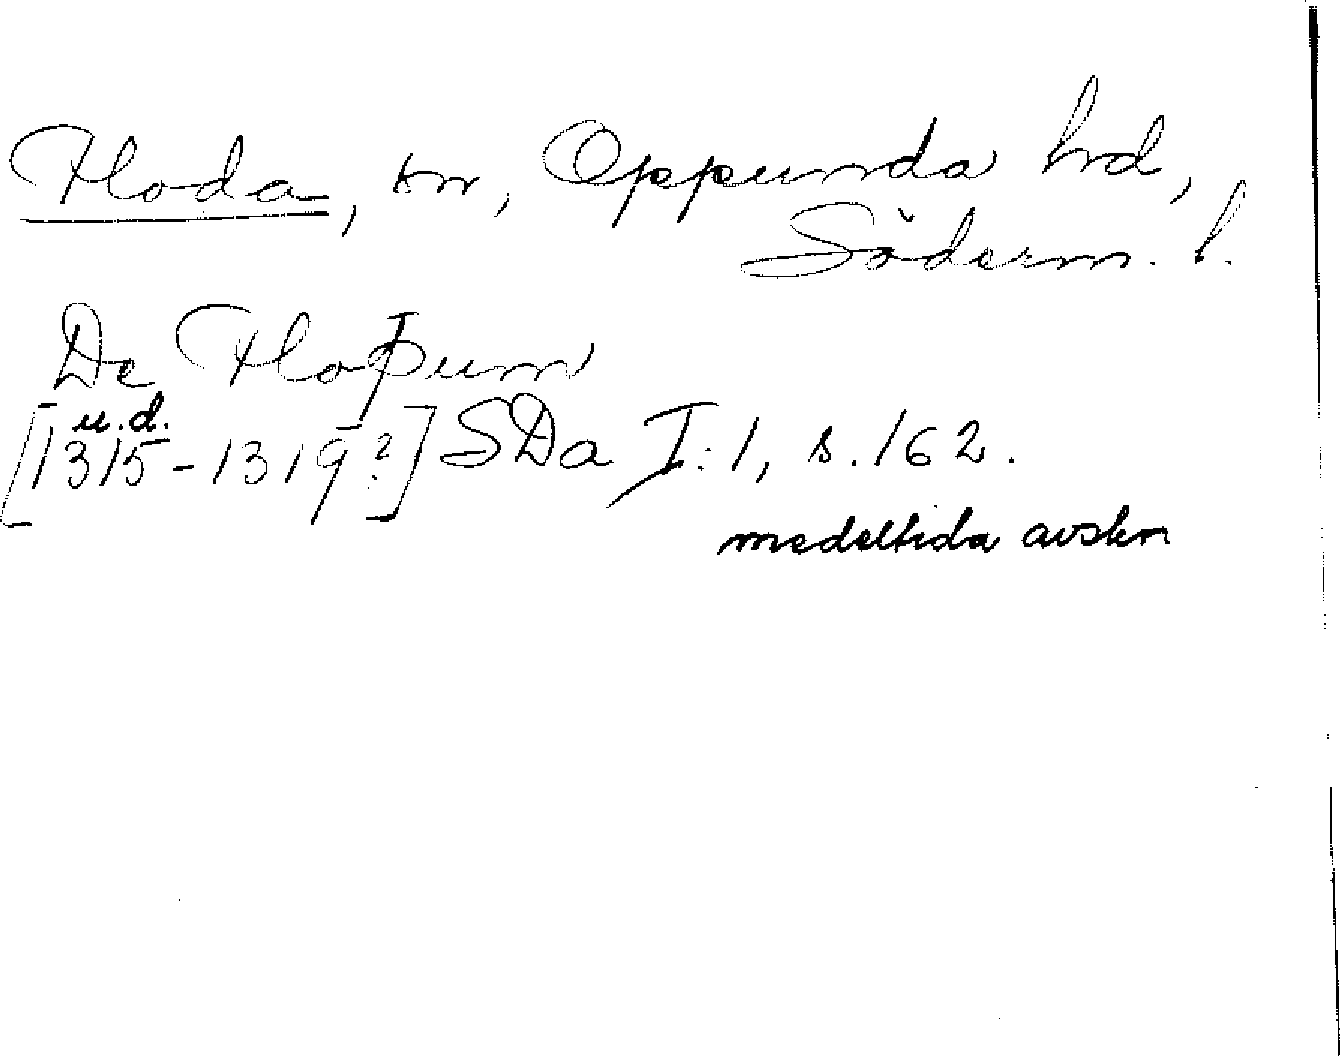 Floda, sn, Oppunda hd,
Söderm. l.
De Floþum
u.d.
[1315-1319?] SDa I:1, s. 162.
medeltida avskr